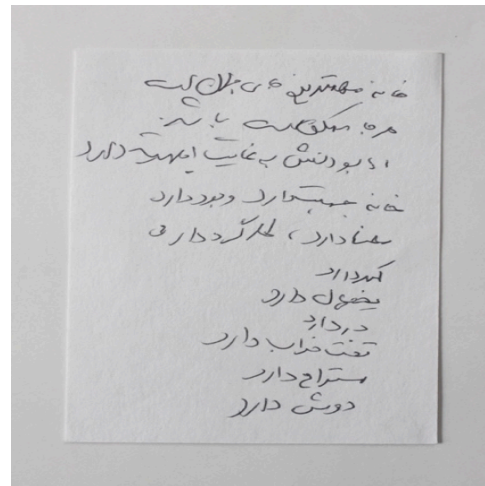 خانه مهمترین جای جهان است
هرجا ممکن است باشد
اما بودنش به غایت اهمیت دارد
خانه جمعیت دارد وجود دارد
معنا دارد، کارکرد دارد
کمد دارد
یخچال دارد
در دارد
تخت خواب دارد
مستراح دارد
دوش دارد